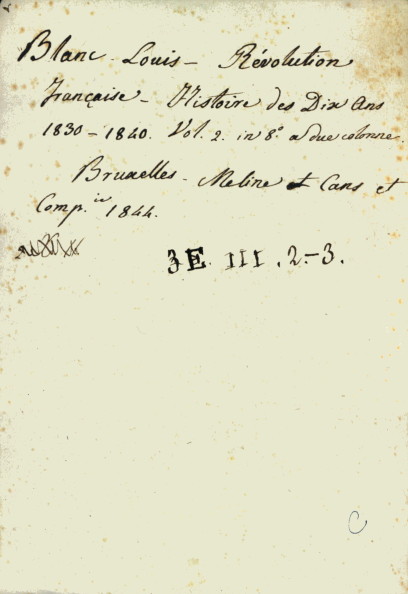 Blanc Louis - Révolution
Française - Histoire des Dix Ans
1830-1840. Vol. 2. in 8.º a due colonne.
Bruxelles - Meline et Cans et
Comp.ie 1844.
3E III . 2-3.
C